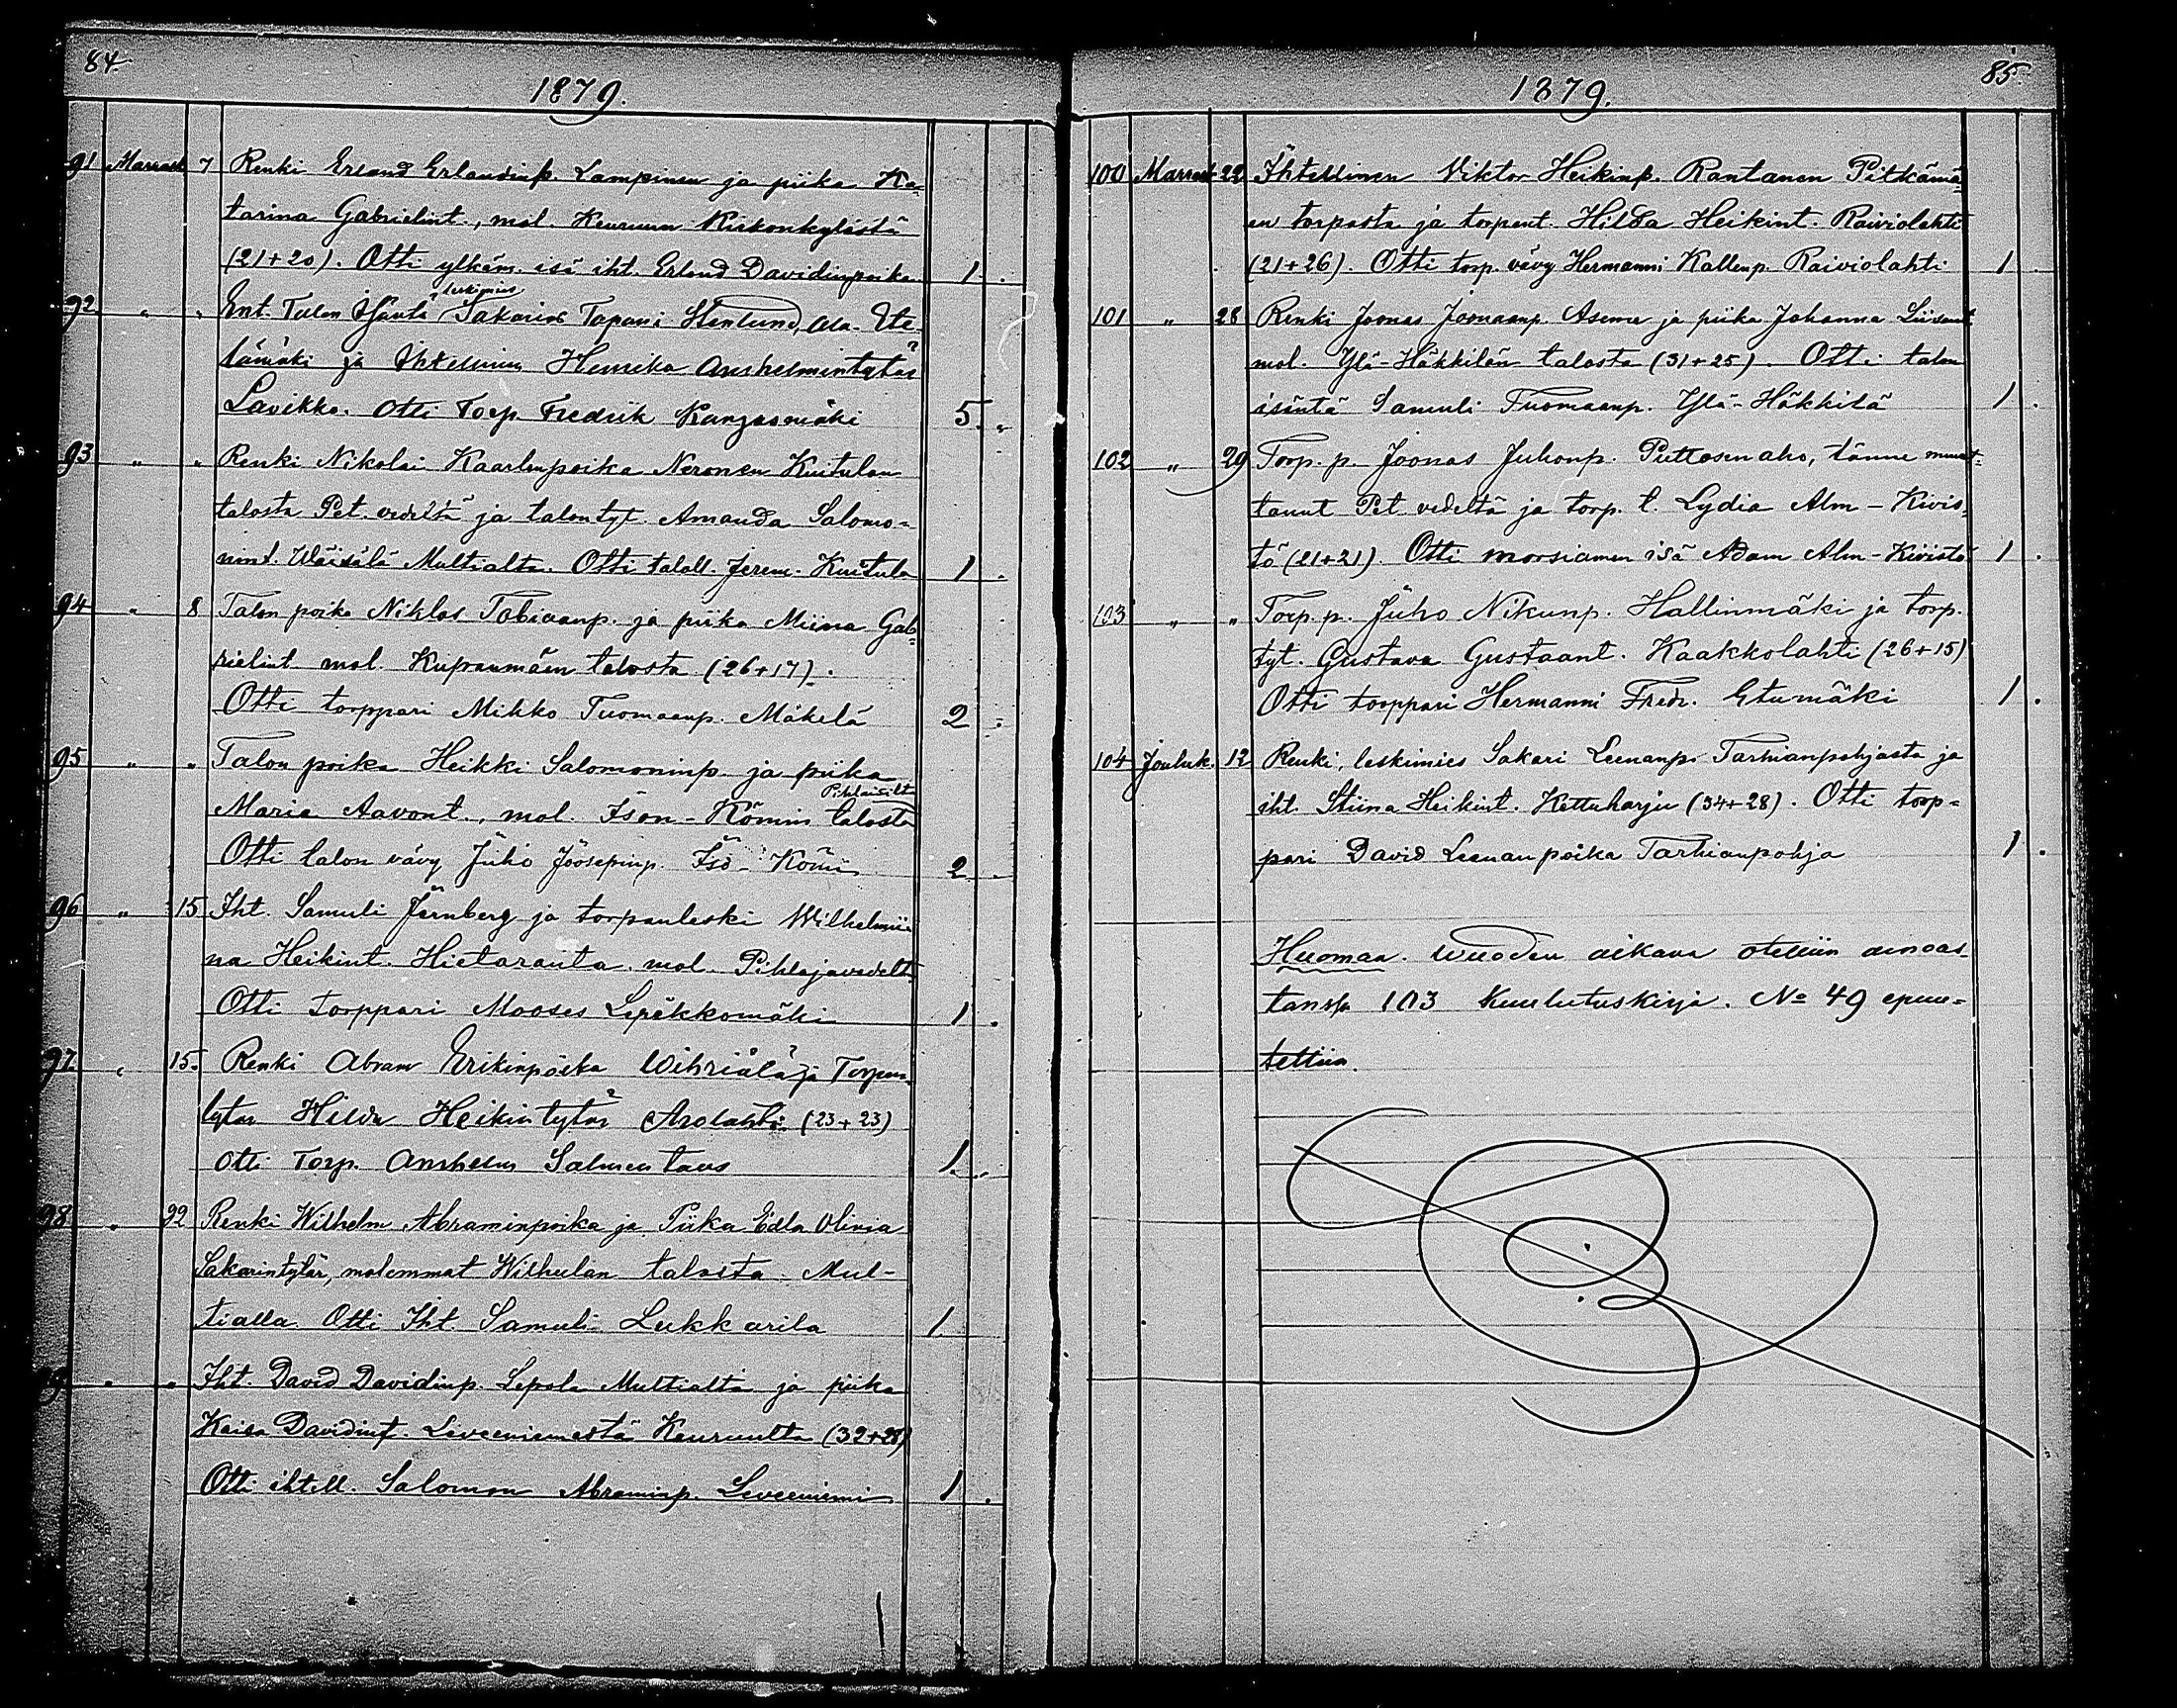 84.
1879.
91 Marrask 7 Renki Erland Erlandinp. Lampinen ja piika Ka-
tarina Gabrielint., mol. Keuruun Kirkonkylästä
(21+20). Otti ylkäm. isä iht. Erland Davidinpoika 1 .
leskimies
92 " " Ent. Talon Isäntä Sakarias Tapani Stenlund, Ala-Ete-
lämäki ja Ihtellinen Henrika Anshelmintytär
Lavikko. Otti Torp. Fredrik Kangasmäki 5. "
93 " " Renki Nikolai Kaarlenpoika Neronen Kuitulan
talosta Pet. vedeltä ja talontyt. Amanda Salomo-
nint. Wäisälä Multialta. Otti taloll. Jerem. Kuitula 1 .
94 " 8 Talon poika Niklas Tobiaanp. ja piika Miina Gab-
rielint. mol. Kupanmäen talosta (26+17).
Otti torppari Mikko Tuomaanp. Mäkelä 2 .
95 " " Talon poika Heikki Salomoninp. ja piika
Maria Aavont., mol. Ison-Kömin talosta
Otti talon vävy Juho Jöösepinp. Iso-Kömi 2 .
96 " 15 Iht. Samuli Järnberg ja torpanleski Wilhelmii-
na Heikint. Hietaranta mol. Pihlajavedelt.
Otti torppari Mooses Lepäkkomäki 1 .
97 " 15. Renki Abram Erikinpoika Wihriälä ja Torpan-
tytär Hilda Heikintytär Arolahti (23+23)
Otti Torp. Anshelm Salmentaus 1. "
98 " 22 Renki Wilhelm Abraminpoika ja Piika Edla Olivia
Sakarintytär, molemmat Wilhulan talosta Mul-
tialla. Otti Iht. Samuli Lukkarila 1
99 " " Iht. David Davidinp. Lepola Multialta ja piika
Kaisa Davidint. Leveeniemestä Keuruulta (32+28)
Otti ihtell. Salomon Abraminp. Leveeniemi 1 .
85.
1879.
100 Marrask 22 Ihtellinen Viktor Heikinp. Rantanen Pitkämä-
en torpasta ja torpant. Hilda Heikint. Raiviolahti
(21+26). Otti torp. vävy Hermanni Kallenp. Raiviolahti 1 .
101 " 28 Renki Joonas Joonaanp. Asema ja piika Johanna Liisant.
mol. Ylä-Häkkilän talosta (31+25). Otti talon
isäntä Samuli Tuomaanp. Ylä-Häkkilä 1 .
102 " 29 Torp. p. Joonas Juhonp. Puttosenaho, tänne muut-
tanut Pet vedeltä ja torp. t. Lydia Alm-Kivis-
tö (21+21). Otti morsiamen isä Adam Alm-Kivistö 1 .
103 " " Torp. p. Juho Nikunp. Hallinmäki ja torp.
tyt. Gustava Gustaant. Kaakkolahti (26+15)
Otti torppari Hermanni Fredr. Etumäki 1 .
104 Jouluk. 12 Renki, leskimies Sakari Leenanp. Tarhianpohjasta ja
iht. Stiina Heikint. Kettuharju (34+28). Otti torp-
pari David Leenanpoika Tarhianpohja 1 .
Huomaa. Wuoden aikana otettiin ainoas-
tansa 103 Kuulutuskirja. No 49 epuu-
tettiin.